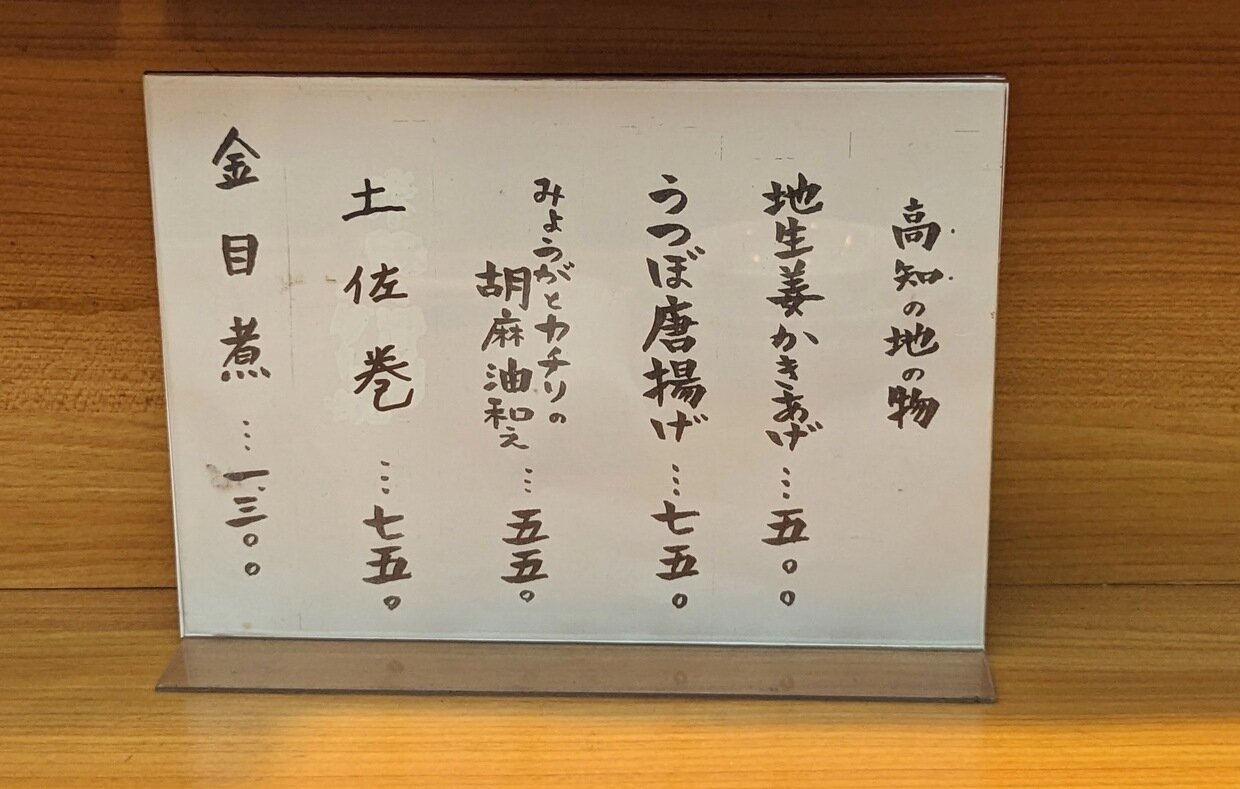 高知の地の物
地生姜かきあげ…五〇〇
うつぼ唐揚げ…七五〇
みょうがとカチリの
胡麻油和え…五五〇
土佐巻…七五〇
金目煮…一、三〇〇